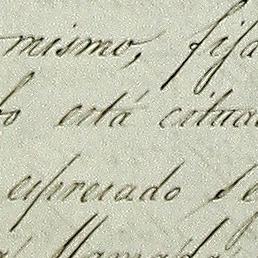 mismo, fija
está citua
espresado se
llamada